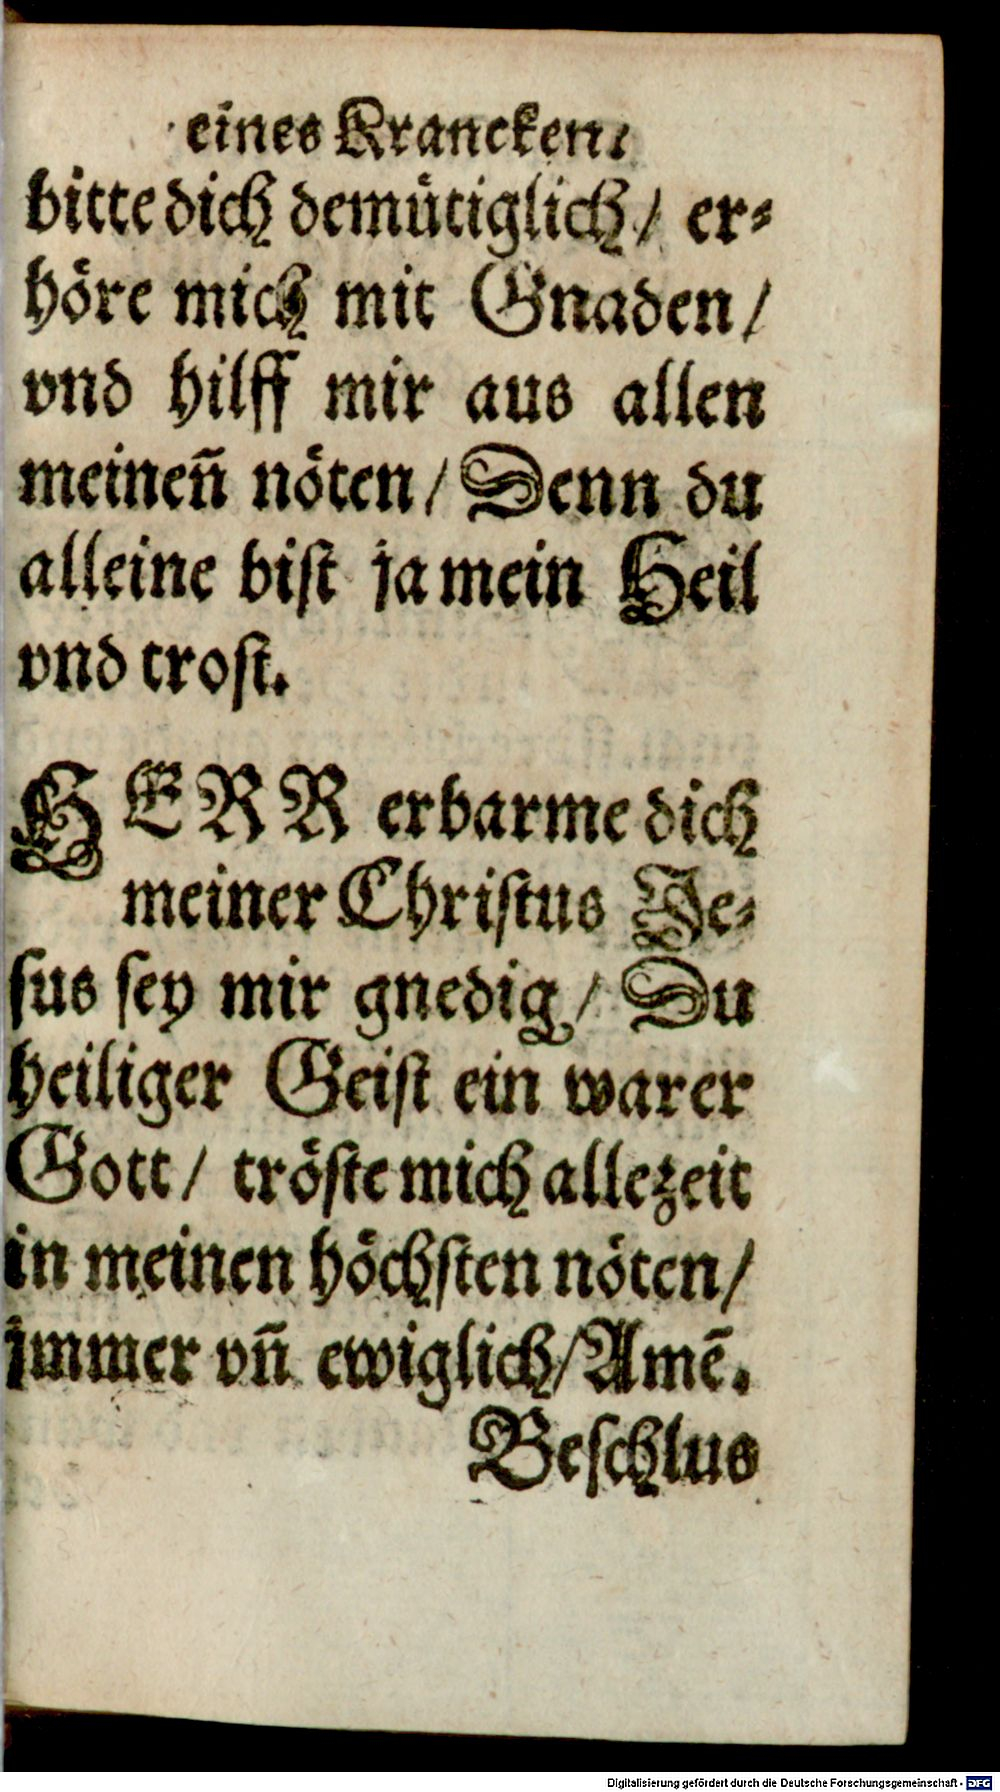 eines Krancken.
bitte dich demütiglich / er-
höre mich mit Gnaden /
vnd hilff mir aus allen
meineñ nöten / Denn du
alleine bist ja mein Heil
vnd trost.
HERR erbarme dich
meiner Christus Je-
sus sey mir gnedig / Du
heiliger Geist ein warer
Gott / tröste mich allezeit
in meinen höchsten nöten /
jmmer vñ ewiglich / Amẽ.
Beschlus
Digitalisierung gefördert durch die Deutsche Forschungsgemeinschaft - DFG